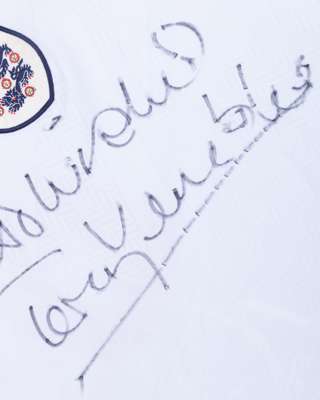 Wishes
Terry Venables